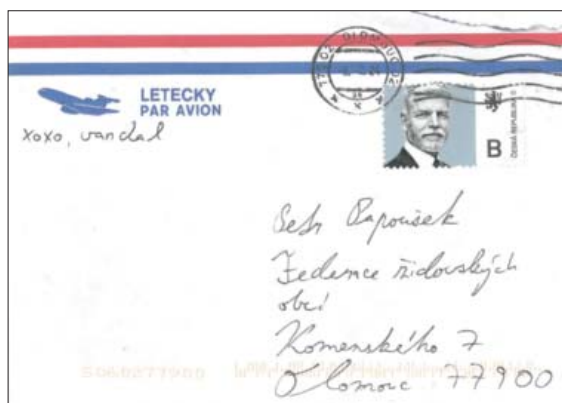 772 02 OLOMOUC 02
LETECKY
PAR AVION
xoxo, vandal
ČESKÁ REPUBLIKA
B
Petr Papoušek
Federace židovských
obcí
Komenského 7
Olomouc 77900